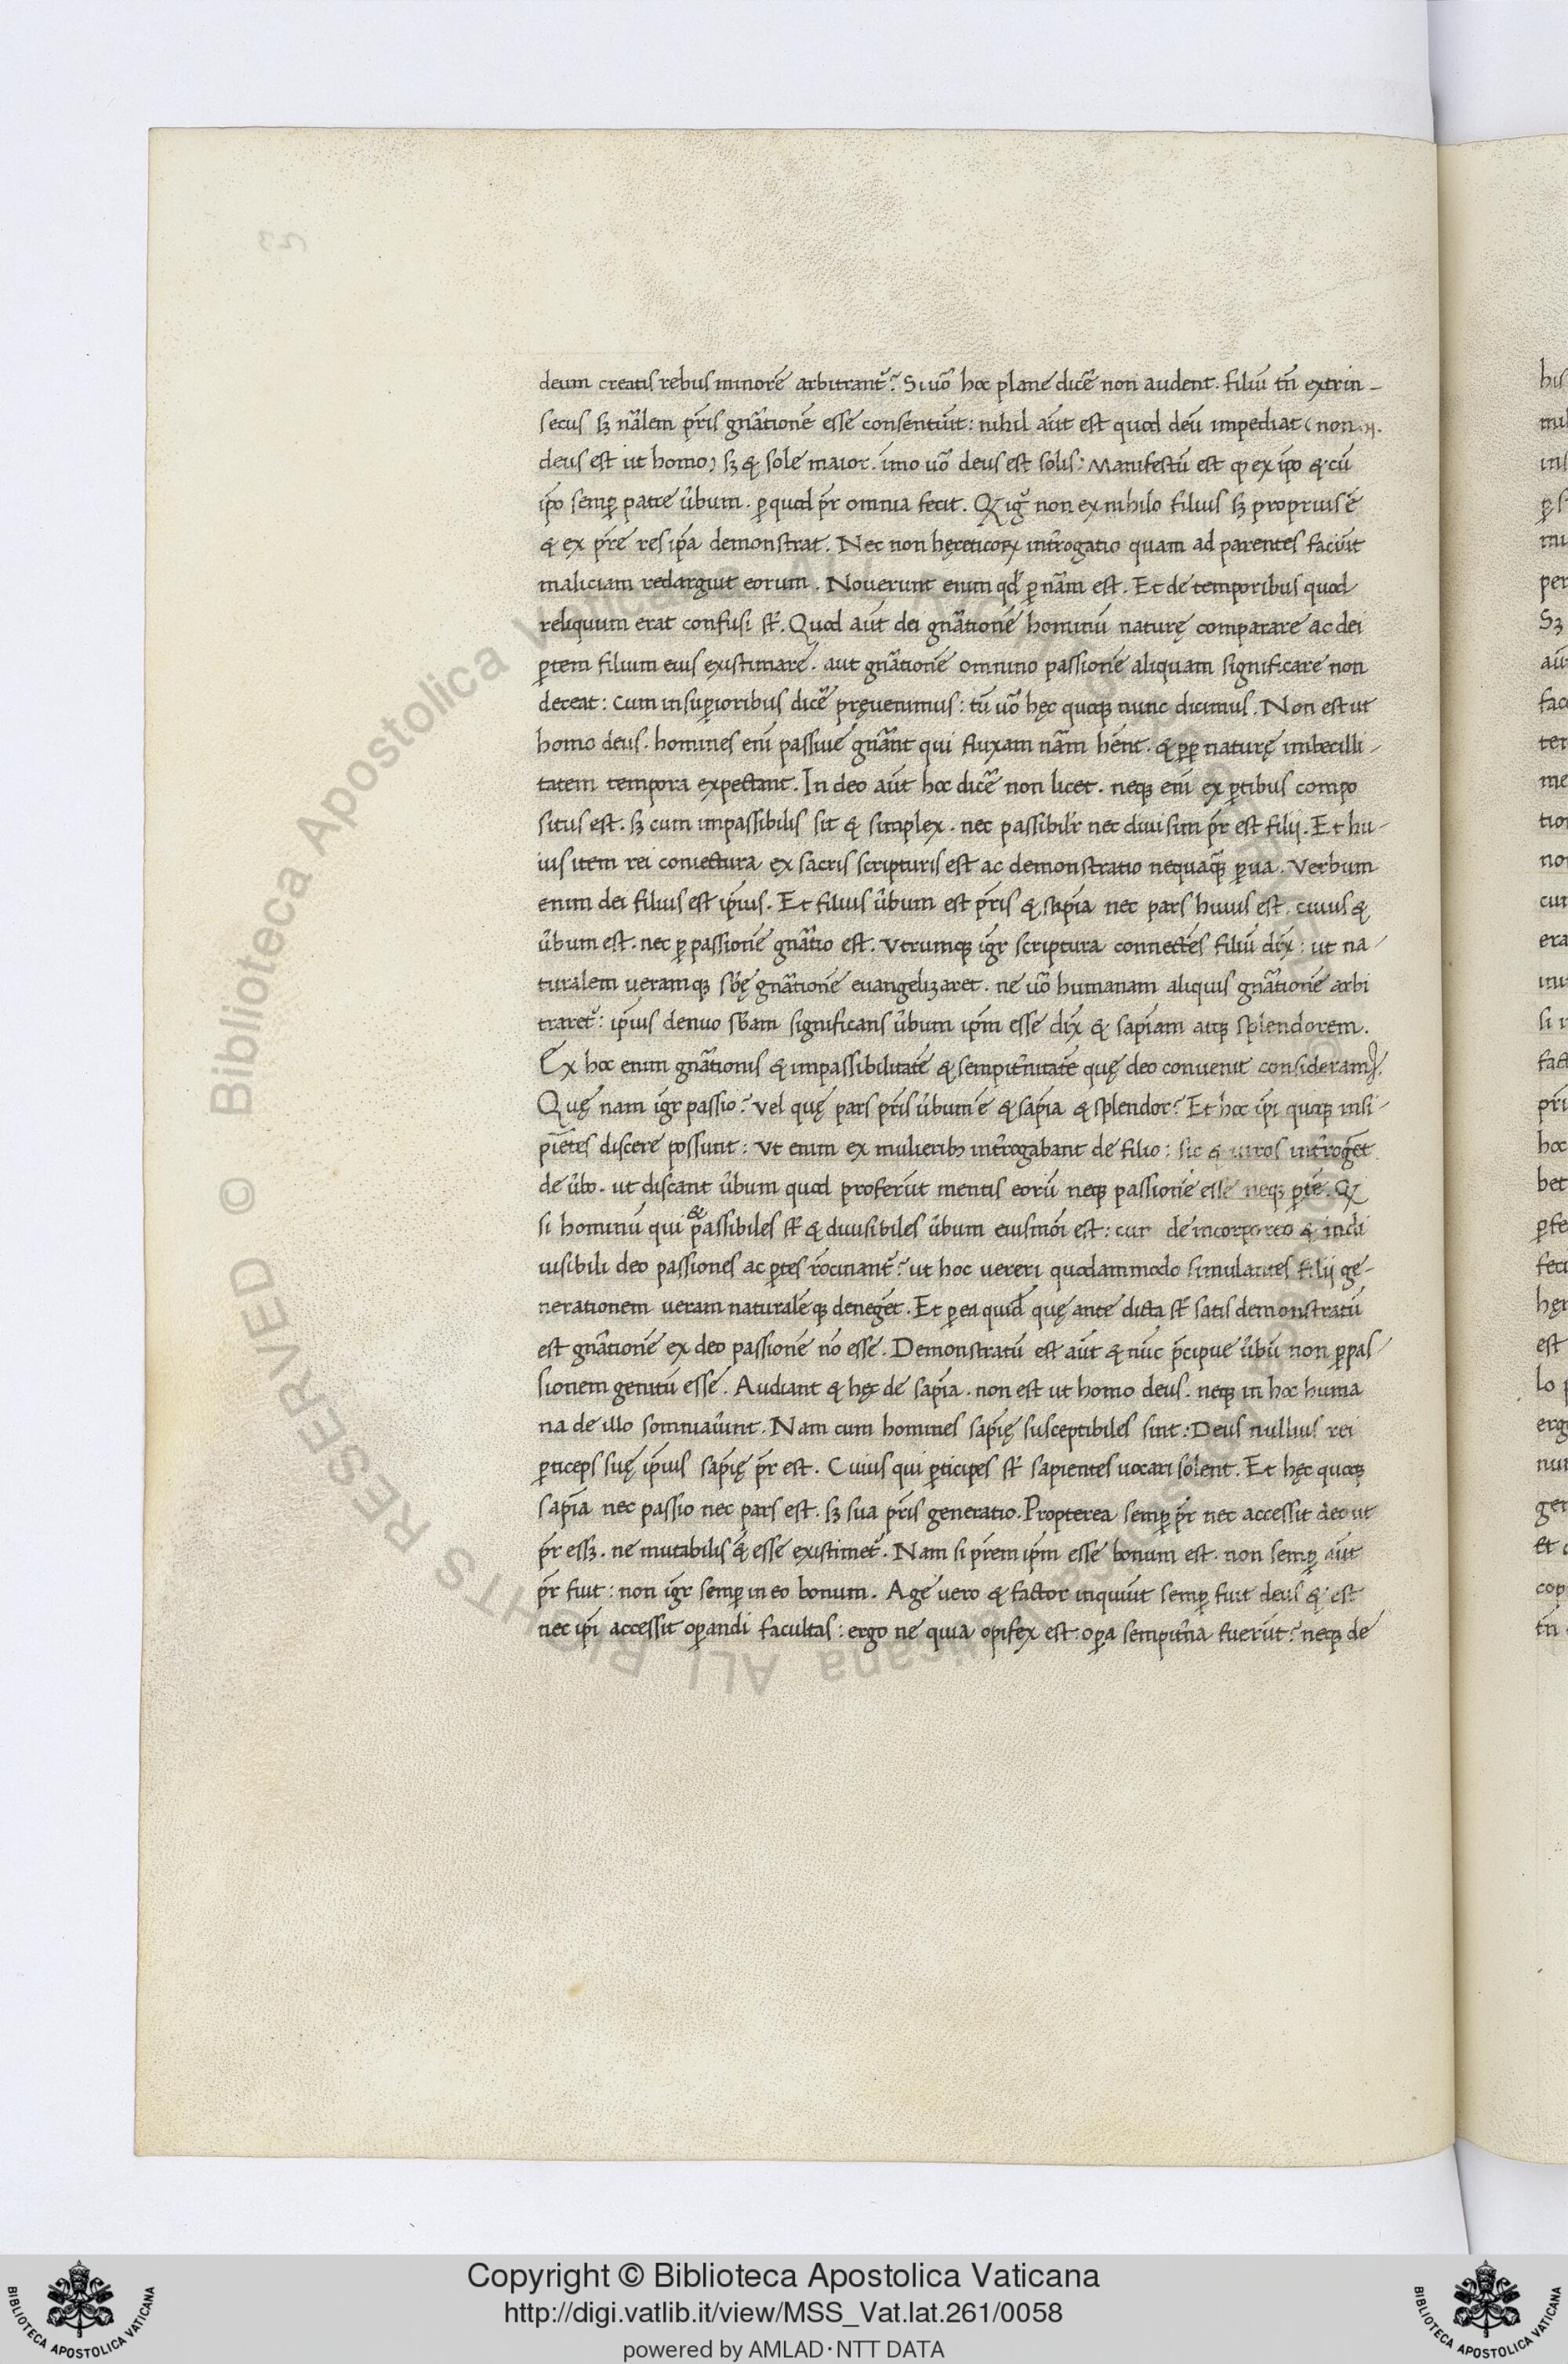 deum creatis rebus minorē arbitrant᷑? Si uō hoc plane dicē non audent. filiū tn̄ extrin-
secus sꝫ nālem pr̄is gn̄ationē esse consentiūt: nihil aūt est quod deū impediat (non
deus est ut homo) sꝫ & sole maior. imo uō deus est solis: Manifestū est ꝙ ex ip̄o & cū
ip̄o semꝑ patre ūbum. ꝑ quod pr̄ omnia fecit. Qꝫ ig̃ non ex nihilo filius sꝫ proprius ē
& ex pr̄e res ip̄a demonstrat. Nec non hęreticoꝝ int̄rogatio quam ad parentes faciūt
maliciam redarguit eorum. Noverunt enim qd̄ ꝑ nām est. Et de temporibus quod
reliquum erat confusi st̄. Quod aūt dei gn̄ationē hominū naturę comparare ac dei
ꝑtem filium eius existimare. aut gn̄ationē omnino passionē aliquam significare non
deceat: cum in suꝑioribus dicē pręvenimus: tū uō hęc quoqꝫ nunc dicimus. Non est ut
homo deus. homines enī passive gn̄ant qui fluxam nām hēnt. & ꝓꝑ naturę imbecilli-
tatem tempora expectant. In deo aūt hoc dicē non licet. neqꝫ enī ex ꝑtibus compo
situs est. sꝫ cum impassibilis sit & simplex. nec passibilr̄ nec divisim pr̄ est filij. Et hu-
ius item rei coniectura ex sacris scripturis est ac demonstratio nequaꝗ̄ ꝑva. Verbum
enim dei filius est ip̄ius. Et filius ūbum est pr̄is & sap̄ia nec pars huius est. cuius &
ūbum est. nec ꝑ passionē gn̄atio est. Vtrumqꝫ igr̄ scriptura connectēs filiū dix̄: ut na-
turalem ueramqꝫ sb̄ę gn̄ationē euangelizaret. ne uō humanam aliquis gn̄ationē arbi
traret᷑: ip̄ius denuo sb̄am significans ūbum ip̄m esse dix̄ & sap̄iam atqꝫ splendorem.
Ex hoc enim gn̄ationis & impassibilitatē & sempit̄nitatē quę deo convenit consideram᷒.
Quę nam igr̄ passio? vel quę pars pr̄is ūbum ē & sap̄ia & splendor? Et hoc ip̄i quoqꝫ insi-
piētes discere possunt: Vt enim ex mulieribꝫ int̄rogabant de filio: sic & uiros int̄rogēt
de ūbo. ut discant ūbum quod proferūt mentis eorū neqꝫ passionē esse neqꝫ ꝑtē. Qꝫ
si hominū qui & passibiles st̄ & divisibiles ūbum eiusmōi est: cur de incorporeo & indi
visibili deo passiones ac ꝑtes rōcinant᷑? ut hoc vereri quodammodo simulantes filij ge-
nerationem veram naturalēqꝫ denegēt. Et ꝑ ea quid̄ quę ante dicta st̄ satis demonstratū
est gn̄ationē ex deo passionē nō esse. Demonstratū est aūt & nūc pr̄cipue ūbū non ꝑ pas-
sionem genitū esse. Audiant & hęc de sap̄ia. non est ut homo deus. neqꝫ in hoc huma
na de illo somniav̄int. Nam cum homines sap̄ię susceptibiles sint: Deus nullius rei
ꝑticeps suę ip̄ius sap̄ię pr̄ est. Cuius qui ꝑticipes st̄ sapientes uocari solent. Et hęc quoqꝫ
sap̄ia nec passio nec pars est. sꝫ sua pr̄is generatio. Propterea semꝑ pr̄ nec accessit deo ut
pr̄ essꝫ. ne mutabilis & esse existimet᷑. Nam si pr̄em ip̄m esse bonum est. non semꝑ aūt
pr̄ fuit: non igr̄ semꝑ in eo bonum. Age vero & factor inquiūt semꝑ fuit deus & est
nec ip̄i accessit oꝑandi facultas: ergo ne quia opifex est: oꝑa sempit̄na fuerūt? neqꝫ de
his
© Biblioteca Apostolica Vaticana ALL RIGHTS RESERVED
Copyright © Biblioteca Apostolica Vaticana
http://digi.vatlib.it/view/MSS_Vat.lat.261/0058
powered by AMLAD·NTT DATA
BIBLIOTECA APOSTOLICA VATICANA
BIBLIOTECA APOSTOLICA VATICANA